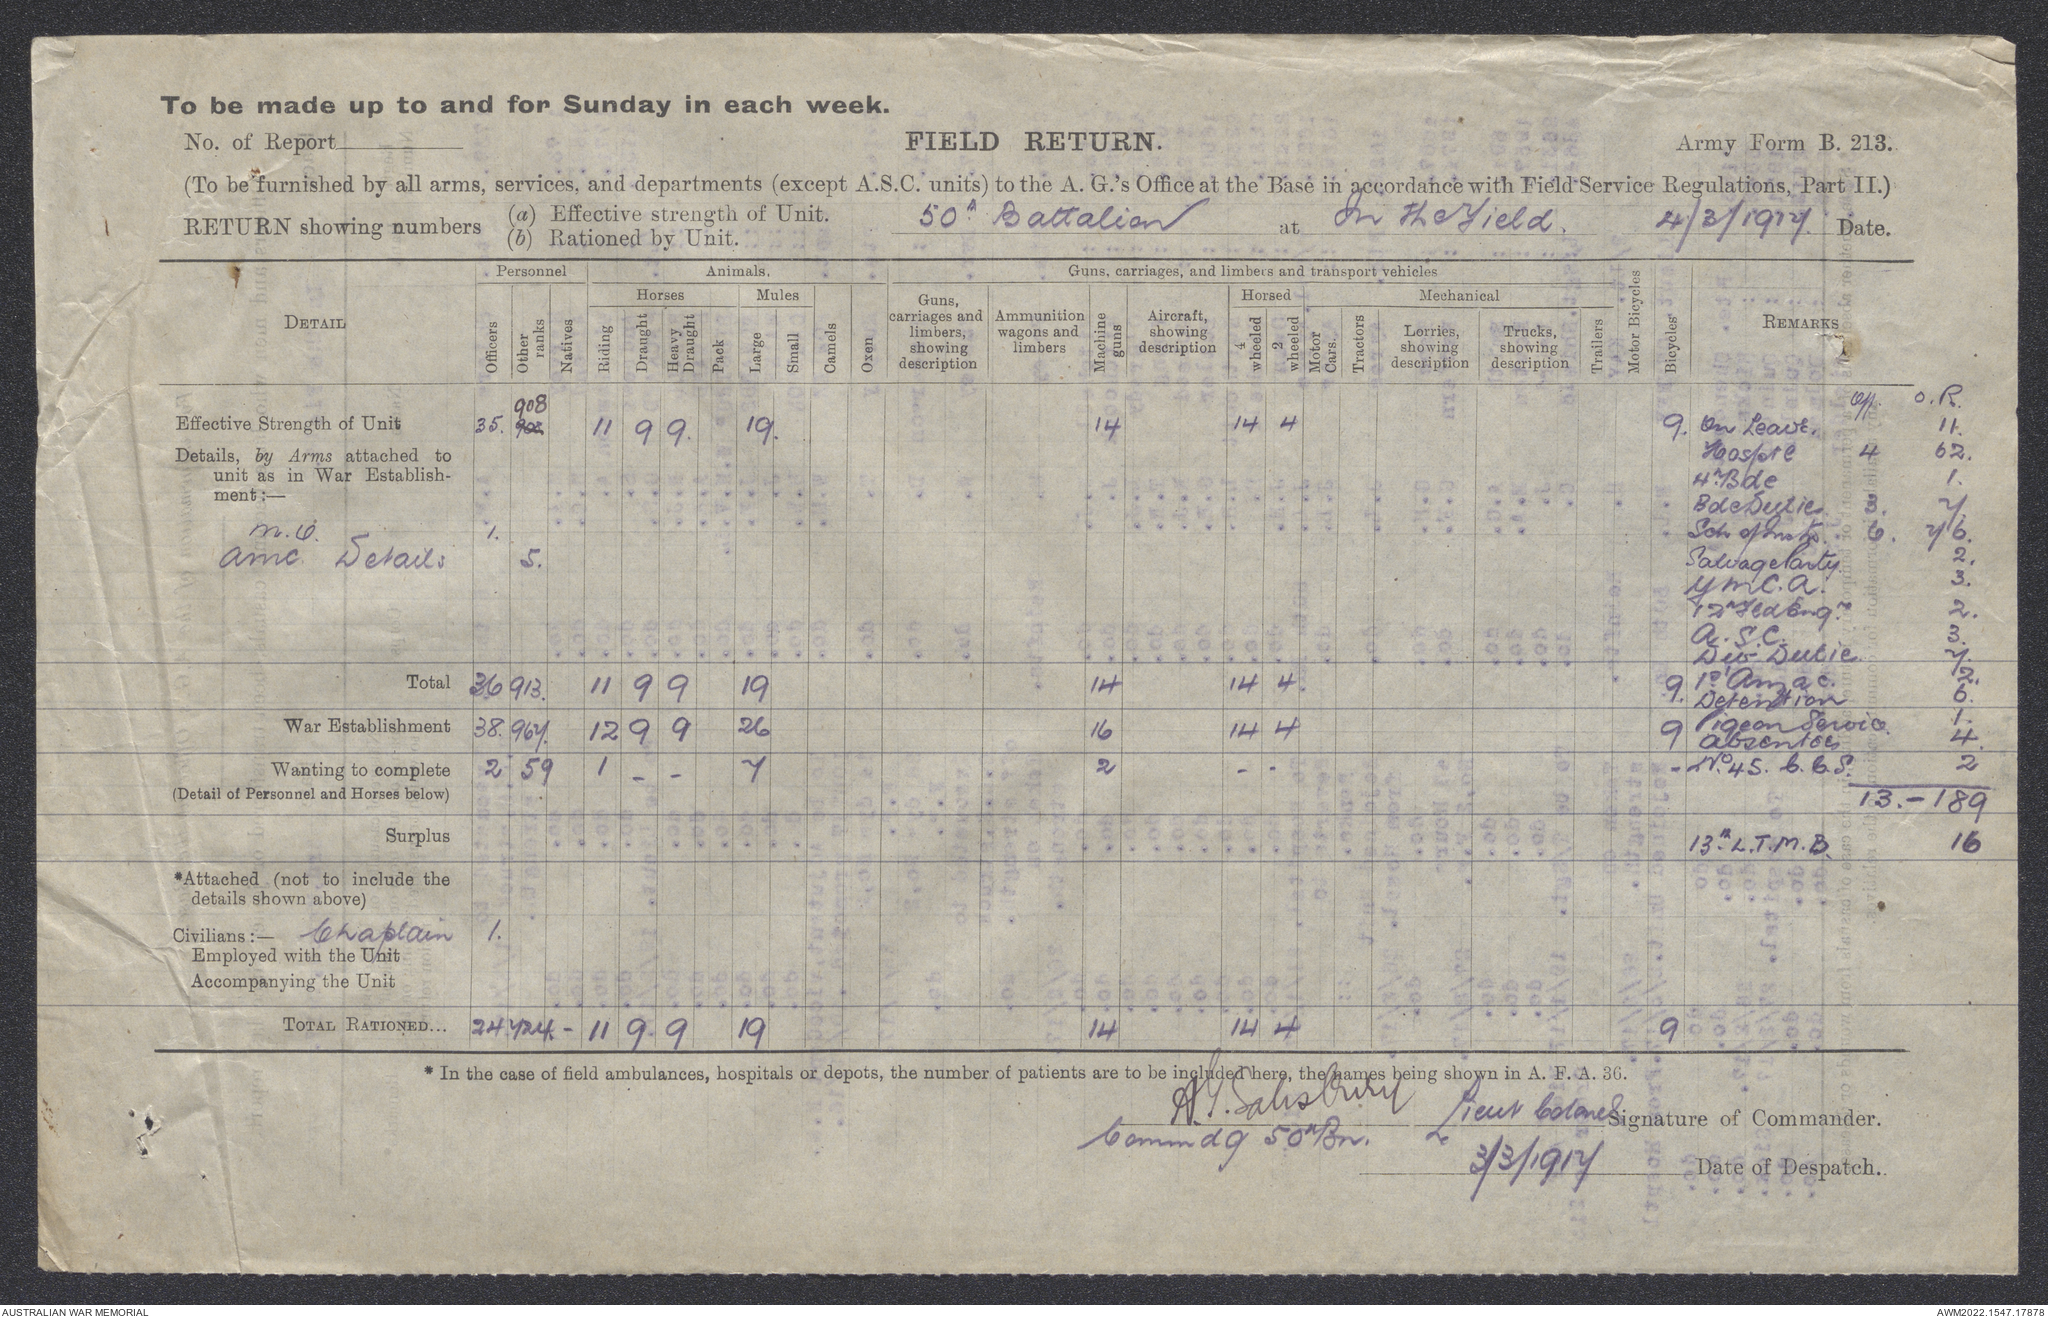 To be made up to and for Sunday in each week.
No. of Report
FIELD RETURN.
Army Form B. 213.
(To be furnished by all arms, services, and departments (except A.S.C. units) to the A. G.'s Office at the Base in accordance with Field Service Regulations, Part II.)
RETURN showing numbers (a) Effective strength of Unit.
(b) Rationed by Unit.
50th Battalion at In the Field. 4/3/1917. Date.
Personnel Animals. Guns, carriages, and limbers and transport vehicles
Horses Mules Horsed Mechanical
DETAIL Officers Other ranks Natives Riding Draught Heavy Draught Pack Large Small Camels Oxen Guns, carriages and limbers, showing description Ammunition wagons and limbers Machine guns Aircraft, showing description 4 wheeled 2 wheeled Motor Cars. Tractors Lorries, showing description Trucks, showing description Trailers Motor Bicycles Bicycles REMARKS
Off. O.R.
908
Effective Strength of Unit 35. 11 9 9. 19. 14 14 4 9. On Leave. 11.
Details, by Arms attached to unit as in War Establishment:— Hosptl 4 62.
4th Bde 1.
Bde Duties 3. 7.
M.O. 1. Sch of Instn. 6. 76.
AMC Details 5. Salvage Party 2.
Y.M.C.A. 3.
12th Fld Engrs 2.
A.S.C. 3.
Div Dutie 7.
Total 36 913. 11 9 9 19 14 14 4 9. 1st Anzac. 2.
Detention 6.
War Establishment 38. 967. 12 9 9 26 16 14 4 9 Pigeon Service. 1.
Absentees 4.
Wanting to complete 2 59 1 - - 7 2 - - - No. 45. C.C.S. 2
(Detail of Personnel and Horses below)
13. - 189
Surplus
13th L.T.M.B. 16
*Attached (not to include the details shown above)
Civilians:— Chaplain 1.
Employed with the Unit
Accompanying the Unit
TOTAL RATIONED... 24. 724. - 11 9. 9 19 14 14 4 9
* In the case of field ambulances, hospitals or depots, the number of patients are to be included here, the names being shown in A. F. A. 36.
A.G. Salisbury Lieut Colonel Signature of Commander.
Commdg 50th Bn.
3/3/1917 Date of Despatch.
AUSTRALIAN WAR MEMORIAL
AWM2022.1547.17878